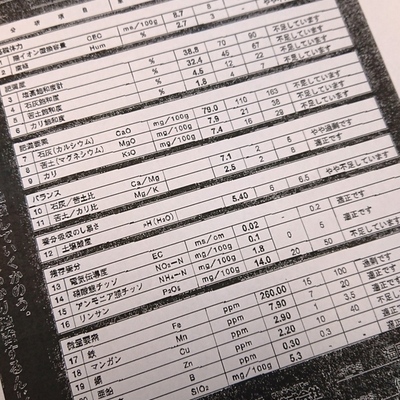 分析項目
基礎体力
1 陽イオン交換容量 CEC ms/100g 8.7 5 -
2 腐植 Hum % 2.7 3 - 不足しています
肥沃度
3 塩基飽和度計 % 38.8 70 90 不足しています
4 石灰飽和度 % 32.4 45 67 不足しています
5 苦土飽和度 % 4.5 12 22 不足しています
6 カリ飽和度 % 1.8 4 7 不足しています
肥沃要素
7 石灰(カルシウム) CaO mg/100g 79.0 110 163 不足しています
8 苦土(マグネシウム) MgO mg/100g 7.9 21 38 不足しています
9 カリ mg/100g 7.4 16 29 不足しています
バランス
10 石灰/苦土比 Ca/Mg 7.1 2 5 やや過剰です
11 苦土/カリ比 Mg/K 2.5 2 8 適正です
養分吸収のし易さ
12 土壌酸度 pH(H₂O) 5.40 6 6.5 やや不足しています
残存養分
13 電気伝導度 EC ms/cm 0.02 - 0.2 適正です
14 硝酸態チッソ NO₃-N mg/100g 0.1 0 5 適正です
15 アンモニア態チッソ NH₄-N mg/100g 1.8 -
16 リンサン P₂O₅ mg/100g 14.0 20 50 不足しています
微量要素
17 鉄 Fe ppm 260.00 15 100 過剰です
18 マンガン Mn ppm 7.90 7 20 適正です
19 銅 Cu ppm 2.90 1 3.5 適正です
亜鉛 Zn ppm 2.20 10 40 不足し
B ppm 0.30 0.3 - 適正
SiO₂ mg/100g 5.3